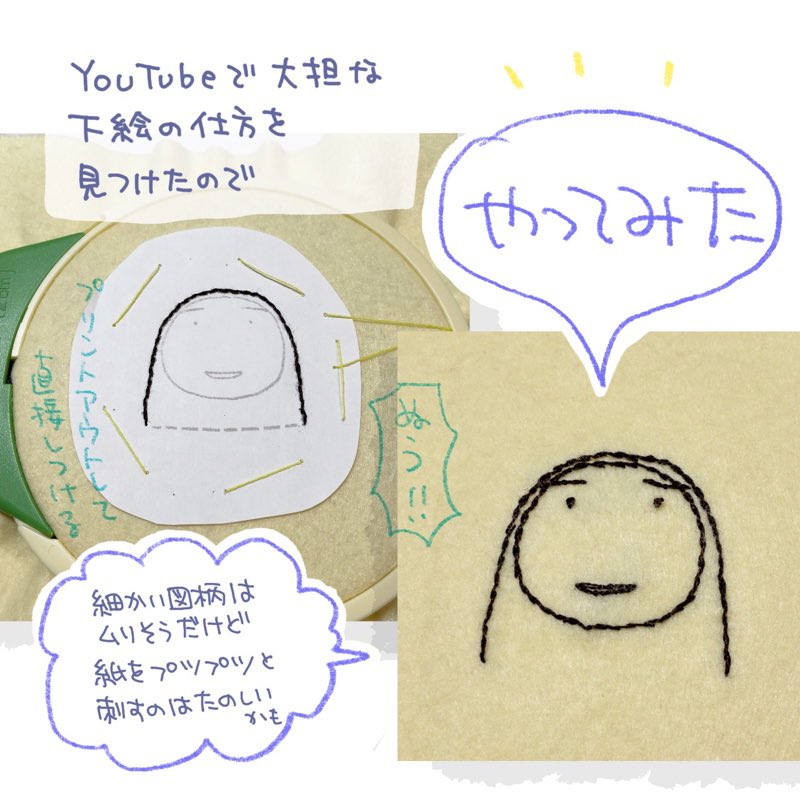 YouTubeで大担な
下絵の仕方を
見つけたので
やってみた
プリントアウトして
直接しつける
ぬう!!
細かい図柄は
ムリそうだけど
紙をプツプツと
刺すのはたのしい
かも